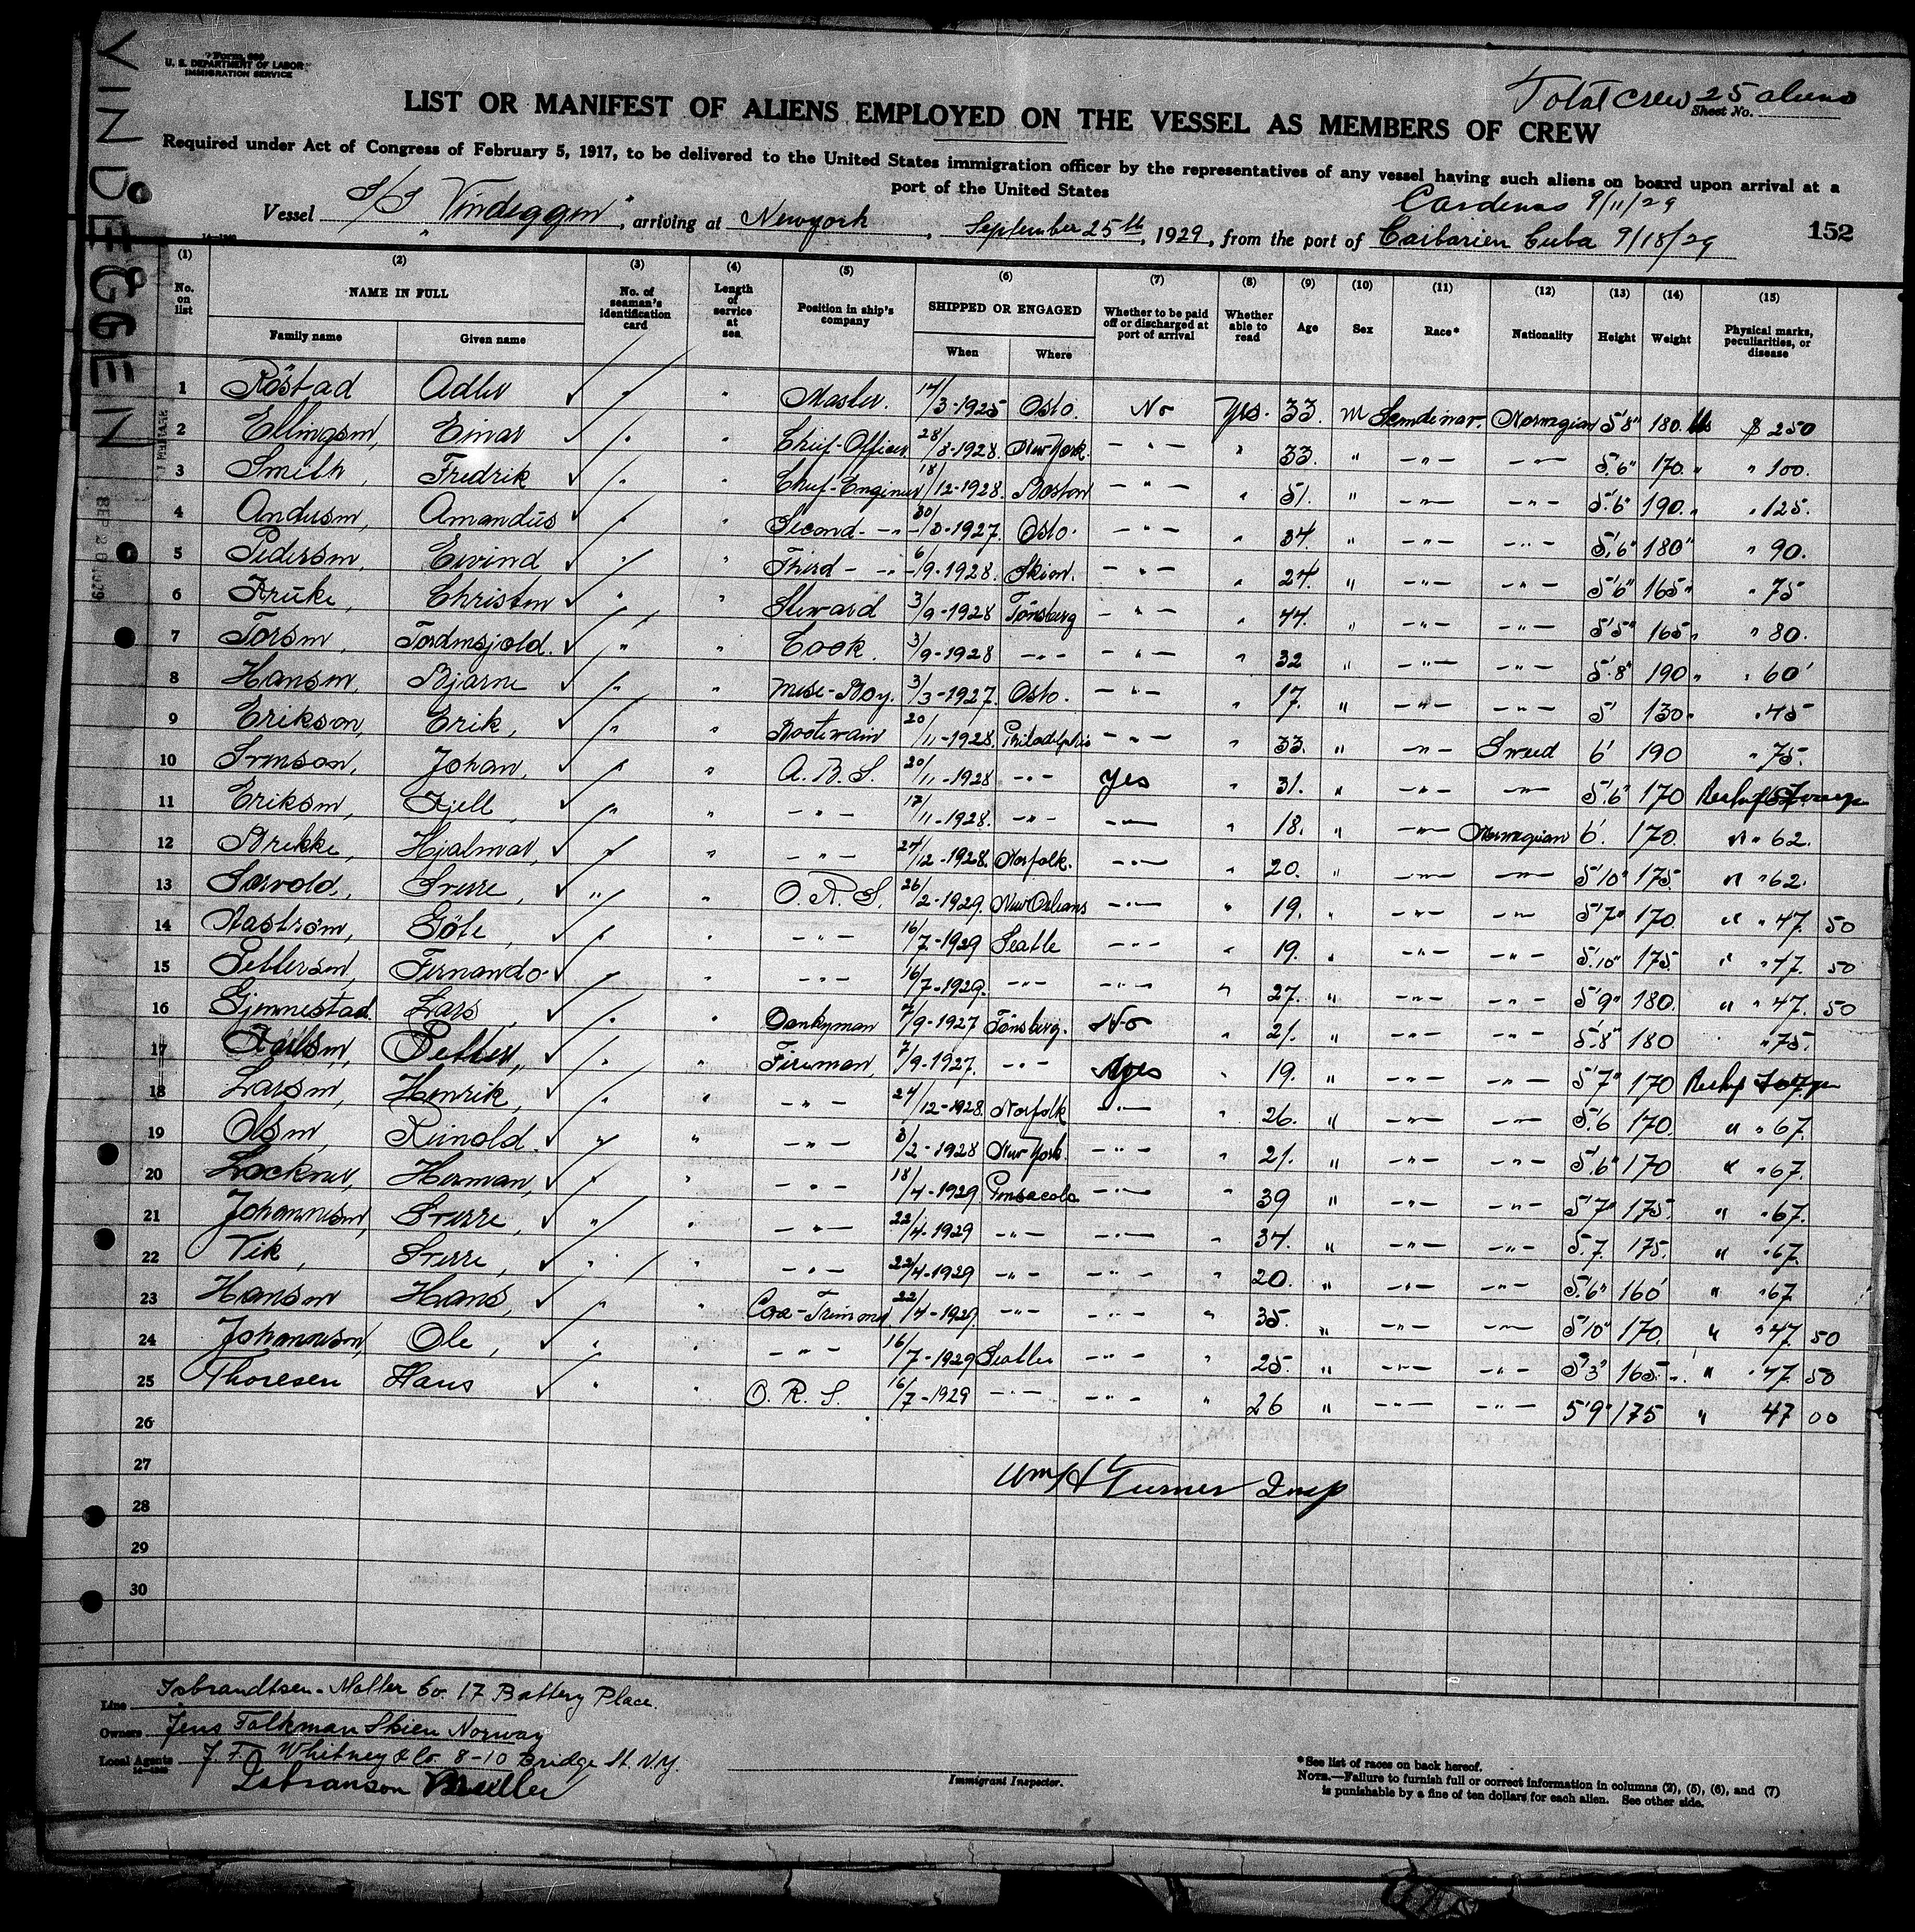 VINDEGGEN
Form 689
U. S. DEPARTMENT OF LABOR
IMMIGRATION SERVICE
Total crew 25 aliens
Sheet No.
LIST OR MANIFEST OF ALIENS EMPLOYED ON THE VESSEL AS MEMBERS OF CREW
Required under Act of Congress of February 5, 1917, to be delivered to the United States immigration officer by the representatives of any vessel having such aliens on board upon arrival at a
port of the United States
Cardenas 9/11/29
Vessel S/S "Vindeggen", arriving at Newyork, September 25th, 1929, from the port of Caibarien Cuba 9/18/29
152
(1) (2) (3) (4) (5) (6) (7) (8) (9) (10) (11) (12) (13) (14) (15)
No. on list NAME IN FULL No. of seaman's identification card Length of service at sea Position in ship's company SHIPPED OR ENGAGED Whether to be paid off or discharged at port of arrival Whether able to read Age Sex Race* Nationality Height Weight Physical marks, peculiarities, or disease
Family name Given name When Where
1 Röstad Adler " " Master. 14/3-1925 Oslo. No Yes. 33. M Scandinav. Norwegian 5'8" 180 lbs $ 250
2 Ellingsen, Einar " " Chief-Officer 28/8-1928 New York. - " - " 33. " - " - - " - 5'6" 170 " " 100.
3 Smith, Fredrik " " Chief-Engineer 18/12-1928. Boston - " - " 51. " - " - - " - 5'6" 190 " " 125.
4 Andersen, Amandus " " Second - " - 30/3-1927. Oslo. - " - " 34. " - " - - " - 5'6" 180 " " 90.
5 Pedersen, Eivind " " Third - " - 6/9-1928. Skien. - " - " 24. " - " - - " - 5'6" 165 " " 75
6 Kruke, Christen " " Steward 3/9-1928 Tönsberg - " - " 44. " - " - - " - 5'5" 165 " " 80.
7 Torsen, Tordenskjold. " " Cook. 3/9-1928 - " - - " - " 32 " - " - - " - 5'8" 190 " " 60
8 Hansen, Bjarne " " Mess-Boy. 3/3-1927. Oslo. - " - " 17. " - " - - " - 5' 130 " " 45
9 Erikson, Erik, " " Bootswain 20/11-1928. Philadelphia - " - " 33. " - " - Sweed 6' 190 " 75.
10 Svenson, Johan, " " A. B. S. 20/11-1928 - " - Yes " 31. " - " - - " - 5'6" 170
11 Eriksen, Kjell, " " - " - 17/11-1928. - " - - " - " 18. " - " - Norwegian 6'. 170. " " 62.
12 Brekke, Hjalmar, " " - " - 24/12-1928. Norfolk. - " - " 20. " - " - - " - 5'10" 175. " " 62.
13 Sorvold, Sverre, " " O. R. S. 26/2-1929. New Orleans - " - " 19. " - " - - " - 5'7" 170. " " 47. 50
14 Aastrom, Göte, " " - " - 16/7-1929 Seatle - " - " 19. " - " - - " - 5'10" 175. " " 47. 50
15 Pettersen, Fernando " " - " - 16/7-1929. - " - - " - " 27. " - " - - " - 5'9" 180. " " 47. 50
16 Gjennestad. Lars, " " Donkyman 7/9-1927 Tönsberg. No " 21. " - " - - " - 5'8" 180 " 75.
17 Petter, " " Fireman 7/9-1927. - " - Yes " 19. " - " - - " - 5'7" 170
18 Larsen, Henrik, " " - " - 24/12-1928. Norfolk - " - " 26. " - " - - " - 5'6 170. " " 67.
19 Olsen, Reinold. " " - " - 3/2-1928 New York. - " - " 21. " - " - - " - 5'6" 170 " " 67.
20 Lockner, Herman, " " - " - 18/4-1929. Pensacola - " - " 39 " - " - - " - 5'7" 175. " " 67.
21 Johannesen, Sverre, " " - " - 22/4-1929 - " - - " - " 34. " - " - - " - 5'7. 175. " " 67.
22 Vik, Sverre, " " - " - 22/4-1929 - " - - " - " 20. " - " - - " - 5'6" 160 " " 67
23 Hansen Hans, " " Coa-Trimmer. 22/4-1929. - " - - " - " 35. " - " - - " - 5'10" 170. " " 47. 50
24 Johannesen, Ole, " " - " - 16/7-1929 Seatle - " - " 25. " - " - - " - 5'3" 165. " " " 47. 50
25 Thoresen Hans " " O. R. S. 16/7-1929 - " - - " - " 26 " - " - - " - 5'9" 175 " 47 00
26
27
Wm H Turner Insp
28
29
30
Line Isbrandtsen-Moller Co. 17 Battery Place.
Owners Jens Folkman Skien Norway
Local Agents J. F. Whitney & Co. 8-10 Bridge St. N.Y.
Isbranson Mueller
Immigrant Inspector.
*See list of races on back hereof.
NOTE.—Failure to furnish full or correct information in columns (2), (5), (6), and (7)
is punishable by a fine of ten dollars for each alien. See other side.